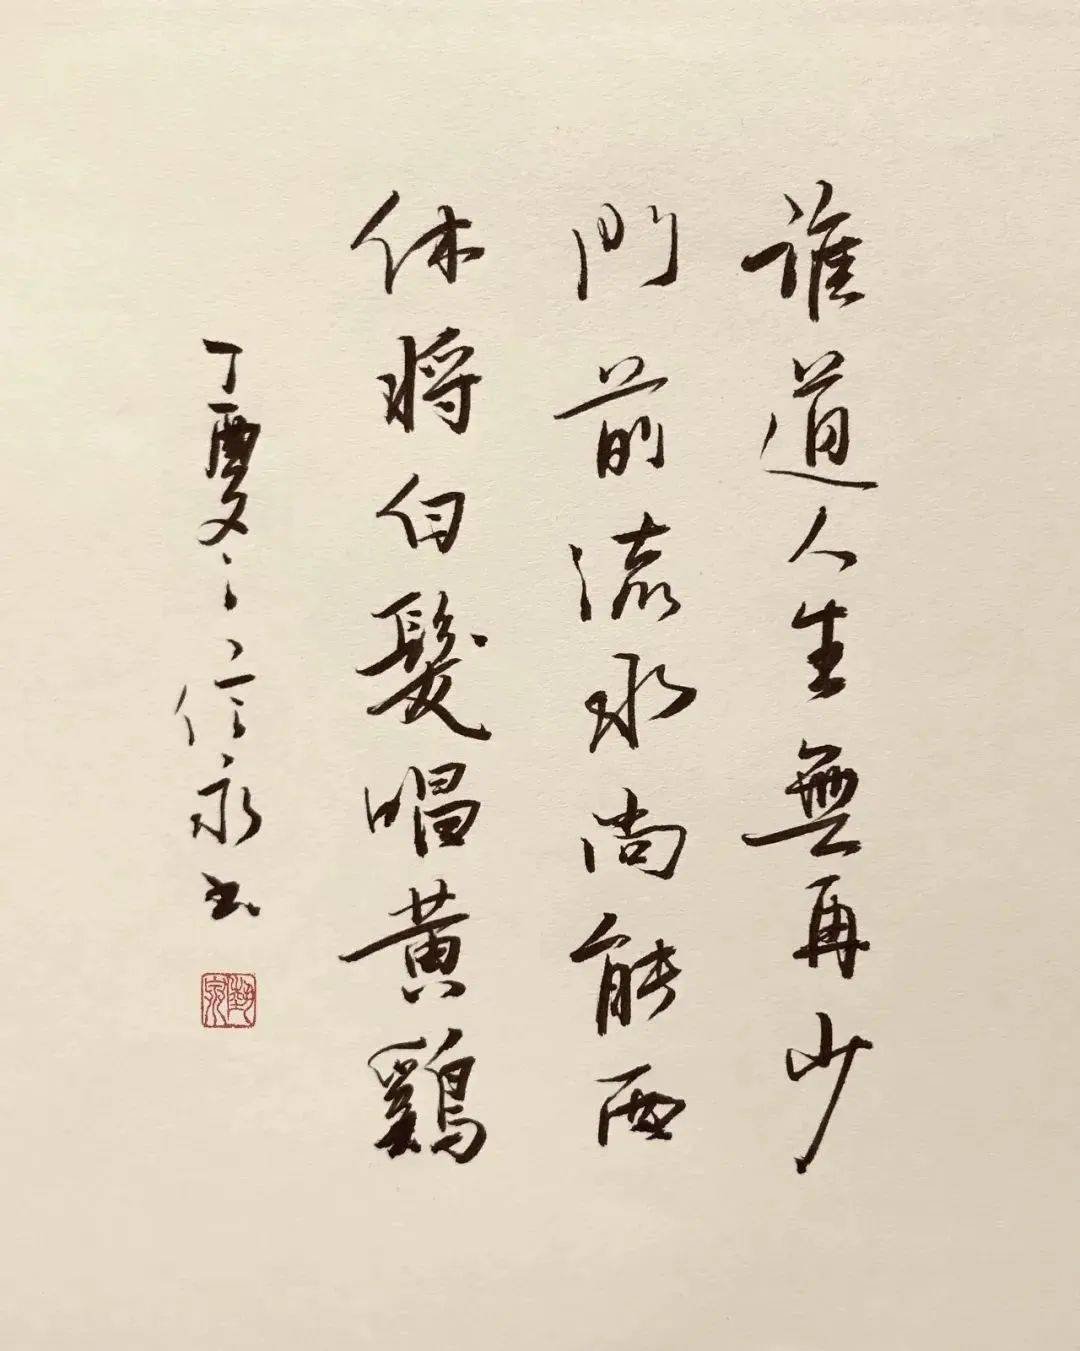 谁道人生無再少
門前流水尚能西
休將白髮唱黃鷄
丁酉夏信永书